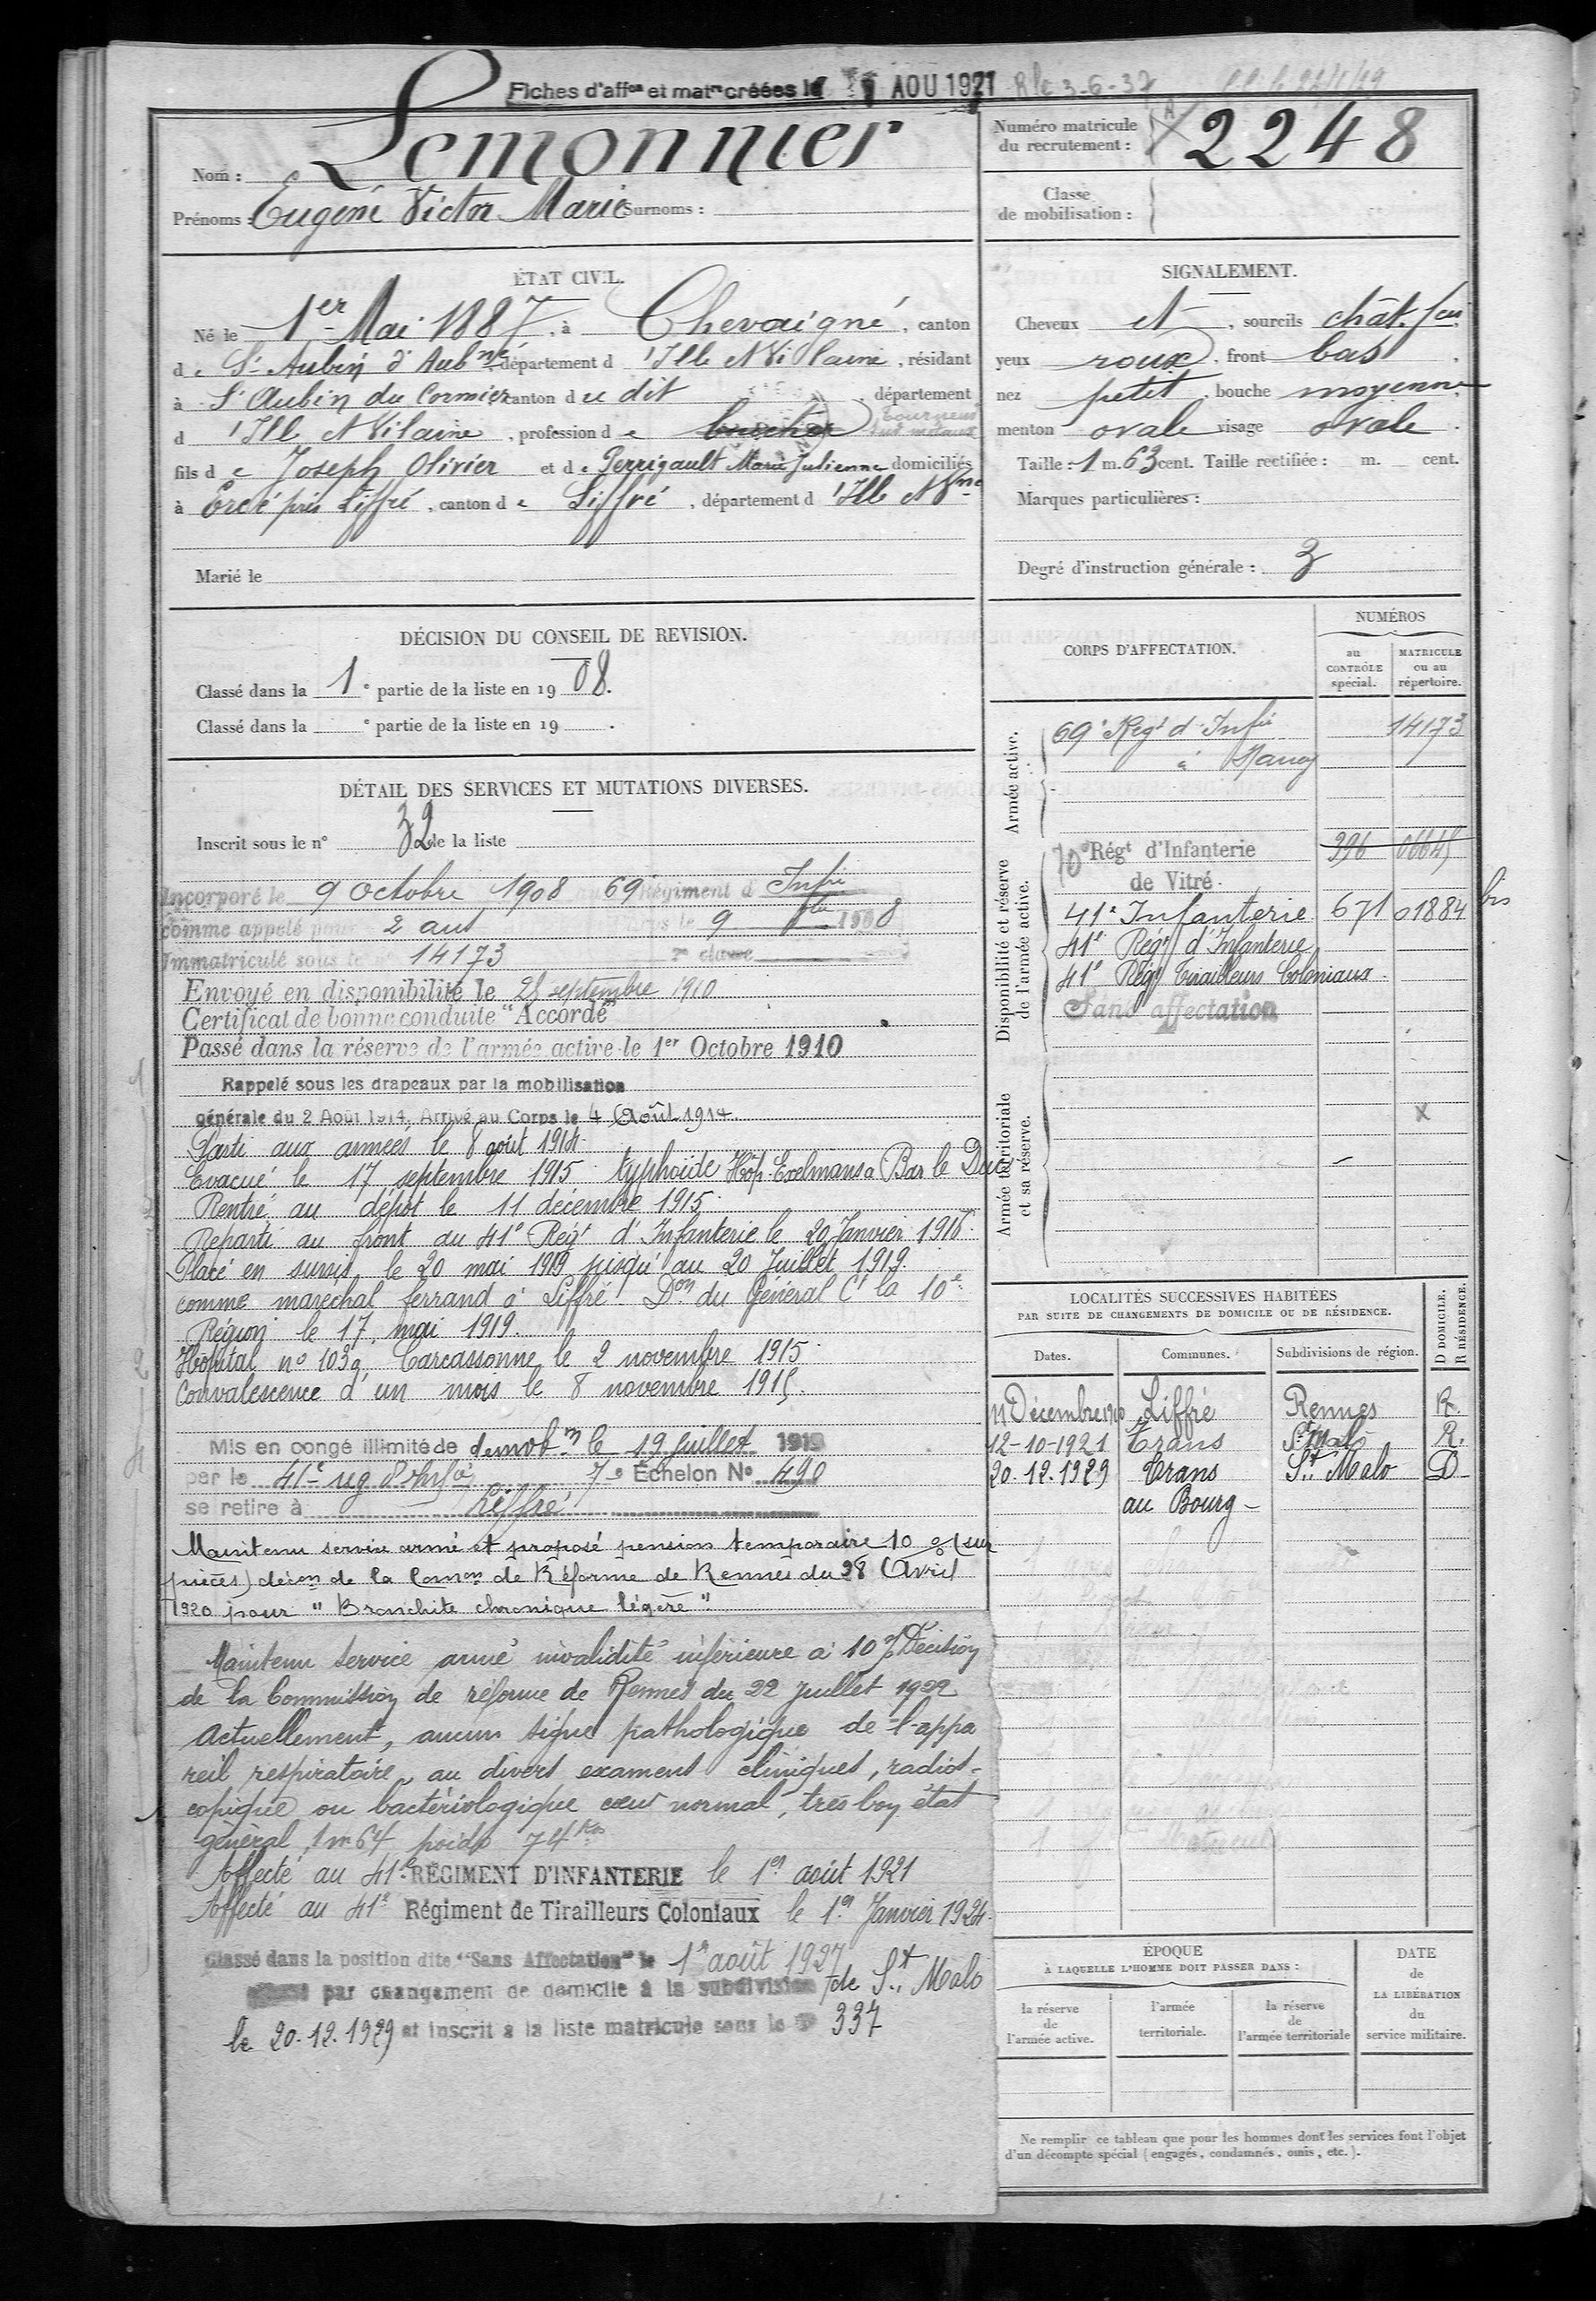 Fiches d'affon et matre créées le AOU 1921 Rle 3-6-37
Nom : Lemonnier
Prénoms : Eugène Victor Marie Surnoms :
Numéro matricule du recrutement : 2248
Classe de mobilisation :
ÉTAT CIVIL.
Né le 1er Mai 1887, à Chevaigné, canton
de St Aubin d'Aubné département d'Ille et Vilaine, résidant
à St Aubin du Cormier canton du dit, département
d'Ille et Vilaine, profession de tourneur sur métaux
fils de Joseph Olivier et de Perrigault Marie Julienne domiciliés
à Ercé près Liffré, canton de Liffré, département d'Ille et Vne
Marié le
SIGNALEMENT.
Cheveux et, sourcils chât. fcé
yeux roux, front bas,
nez petit, bouche moyenne,
menton ovale visage ovale.
Taille : 1 m. 63 cent. Taille rectifiée : m. cent.
Marques particulières :
Degré d'instruction générale : 3
DÉCISION DU CONSEIL DE REVISION.
Classé dans la 1e partie de la liste en 1908.
Classé dans la e partie de la liste en 19 .
DÉTAIL DES SERVICES ET MUTATIONS DIVERSES.
Inscrit sous le n° 32 de la liste
Incorporé le 9 octobre 1908 au 69e Régiment d'Infie
comme appelé pour 2 ans corps le 9 8bre 1908
Immatriculé sous le n° 14173 2e classe
Envoyé en disponibilité le 25 septembre 1910
Certificat de bonne conduite "Accordé"
Passé dans la réserve de l'armée active le 1er Octobre 1910
Rappelé sous les drapeaux par la mobilisation
générale du 2 Août 1914. Arrivé au Corps le 4 Août 1914
Parti aux armées le 8 août 1914.
Evacué le 17 septembre 1915. typhoïde Hôp. Exelmans a Bar le Duc
Rentré au dépôt le 11 décembre 1915.
Reparti au front du 41e Régt d'Infanterie le 20 Janvier 1916.
Placé en sursis le 20 mai 1919 jusqu'au 20 Juillet 1919.
comme maréchal ferrand à Liffré. Don du Général Ct la 10e
Région le 17 mai 1919.
Hôpital no 103 Carcassonne le 2 novembre 1915.
Convalescence d'un mois le 8 novembre 1915.
Mis en congé illimité de démobon le 19 juillet 1919
par le 41e reg d'Infie 7e Échelon No 490
se retire à Liffré
Maintenu service armé et proposé pension temporaire 10 % (sur
pièces) décon de la Comon de Réforme de Rennes du 28 Avril
1920 pour "Bronchite chronique légère".
Maintenu service armé invalidité inférieure à 10 % Décision
de la Commission de réforme de Rennes du 22 Juillet 1922
Actuellement, aucun signe pathologique de l'appa
reil respiratoire, au divers examens cliniques, radios-
copique ou bactériologique cœur normal, très bon état
général, 1m64 poids 74 kos
Affecté au 41e RÉGIMENT D'INFANTERIE le 1er août 1921
Affecté au 41e Régiment de Tirailleurs Coloniaux le 1er Janvier 1924.
Classé dans la position dite "Sans Affectation" le 1er août 1927
par changement de domicile à la subdivision de St Malo
le 20.12.1929 et inscrit à la liste matricule sous le N° 337
CORPS D'AFFECTATION.
NUMÉROS
au CONTRÔLE spécial.
MATRICULE ou au répertoire.
Armée active.
69e Regt d'Infie 14173
à Nancy
Disponibilité et réserve de l'armée active.
70e Régt d'Infanterie 396 06645
de Vitré.
41e Infanterie 671 01884 bis
41e Régt d'Infanterie
41e Régt Tirailleurs Coloniaux.
Sans affectation
Armée territoriale et sa réserve.
LOCALITÉS SUCCESSIVES HABITÉES
PAR SUITE DE CHANGEMENTS DE DOMICILE OU DE RÉSIDENCE.
Dates. Communes. Subdivisions de région. D DOMICILE. R RÉSIDENCE.
11 Décembre 1910 Liffré Rennes R.
12-10-1921 Trans St Malo R.
20.12.1929 Trans St Malo D
au Bourg -
ÉPOQUE
À LAQUELLE L'HOMME DOIT PASSER DANS :
la réserve de l'armée active.
l'armée territoriale.
la réserve de l'armée territoriale
DATE de LA LIBÉRATION du service militaire.
Ne remplir ce tableau que pour les hommes dont les services font l'objet
d'un décompte spécial (engagés, condamnés, omis, etc.).